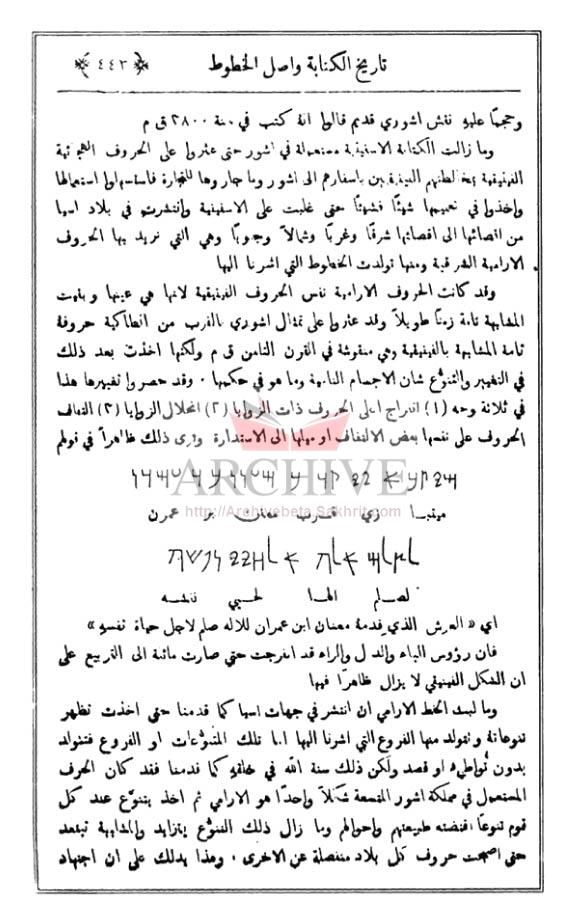 تاريخ الكتابة واصل الخطوط ﴿٤٤٣﴾
وحجبًا عليهِ نقش اشوري قديم قالوا انهُ كتب في سنة ٢٨٠٠ ق م
وما زالت الكتابة الاسفينية مستعملة في اشور حتى عثروا على الحروف الهجائية
الفينيقية بمخالطتهم الفينيقيين باسفارهم الى اشور وما جاروها للتجارة فاستسهلوا استعمالها
واخذوا في تعميمها شيئًا فشيئًا حتى غلبت على الاسفينية وانتشرت في بلاد اسيا
من اقصائها الى اقصائها شرقًا وغربًا وشمالاً وجنوبًا وهي التي نريد بها الحروف
الارامية الشرقية ومنها تولدت الخطوط التي اشرنا اليها
وقد كانت الحروف الارامية نفس الحروف الفينيقية لانها هي عينها وبقيت
المشابهة تامة زمنًا طويلاً وقد عثروا على تمثال اشوري بالقرب من انطاكية حروفهُ
تامة المشابهة بالفينيقية وهي منقوشة في القرن الثامن ق م ولكنها اخذت بعد ذلك
في التغيير والتنوُّع شان الاجسام النامية وما هو في حكمها ٠ وقد حصروا تغييرها هذا
في ثلاثة وجه (١) انفراج اعلى الحروف ذات الزوايا (٢) انحلال الزوايا (٣) التفاف
الحروف على نفسها بعض الالتفاف او ميلها الى الاستدارة وترى ذلك ظاهراً في قولهم
ARCHIVE
http://Archivebeta.Sakhrit.com
ميتبا زي قرب معنن بر عمرن
لصلم الها لحيي نفشه
اي « العرش الذي قدمهُ معنان ابن عمران للاله صلم لاجل حياة نفسهِ »
فان رؤوس الباء والدال والراء قد انفرجت حتى صارت مائلة الى التربيع على
ان الشكل الفينيقي لا يزال ظاهرًا فيها
وما لبث الخط الارامي ان انتشر في جهات اسيا كما قدمنا حتى اخذت تظهر
تنوعاتهُ وتتولد منها الفروع التي اشرنا اليها اما تلك المتنوُّعات او الفروع فتتولد
بدون تواطىءٍ او قصد ولكن ذلك سنة الله في خلقهِ كما قدمنا فقد كان الحرف
المستعمل في مملكة اشور المتسعة شكلاً واحدًا هو الارامي ثم اخذ يتنوَّع عند كل
قوم تنوعًا اقتضته طبيعتهم واحوالهم وما زال ذلك التنوُّع يتزايد والمشابهة تبتعد
حتى اصبحت حروف كل بلاد منفصلة عن الاخرى ٠ وهذا يدلك على ان اجتهاد